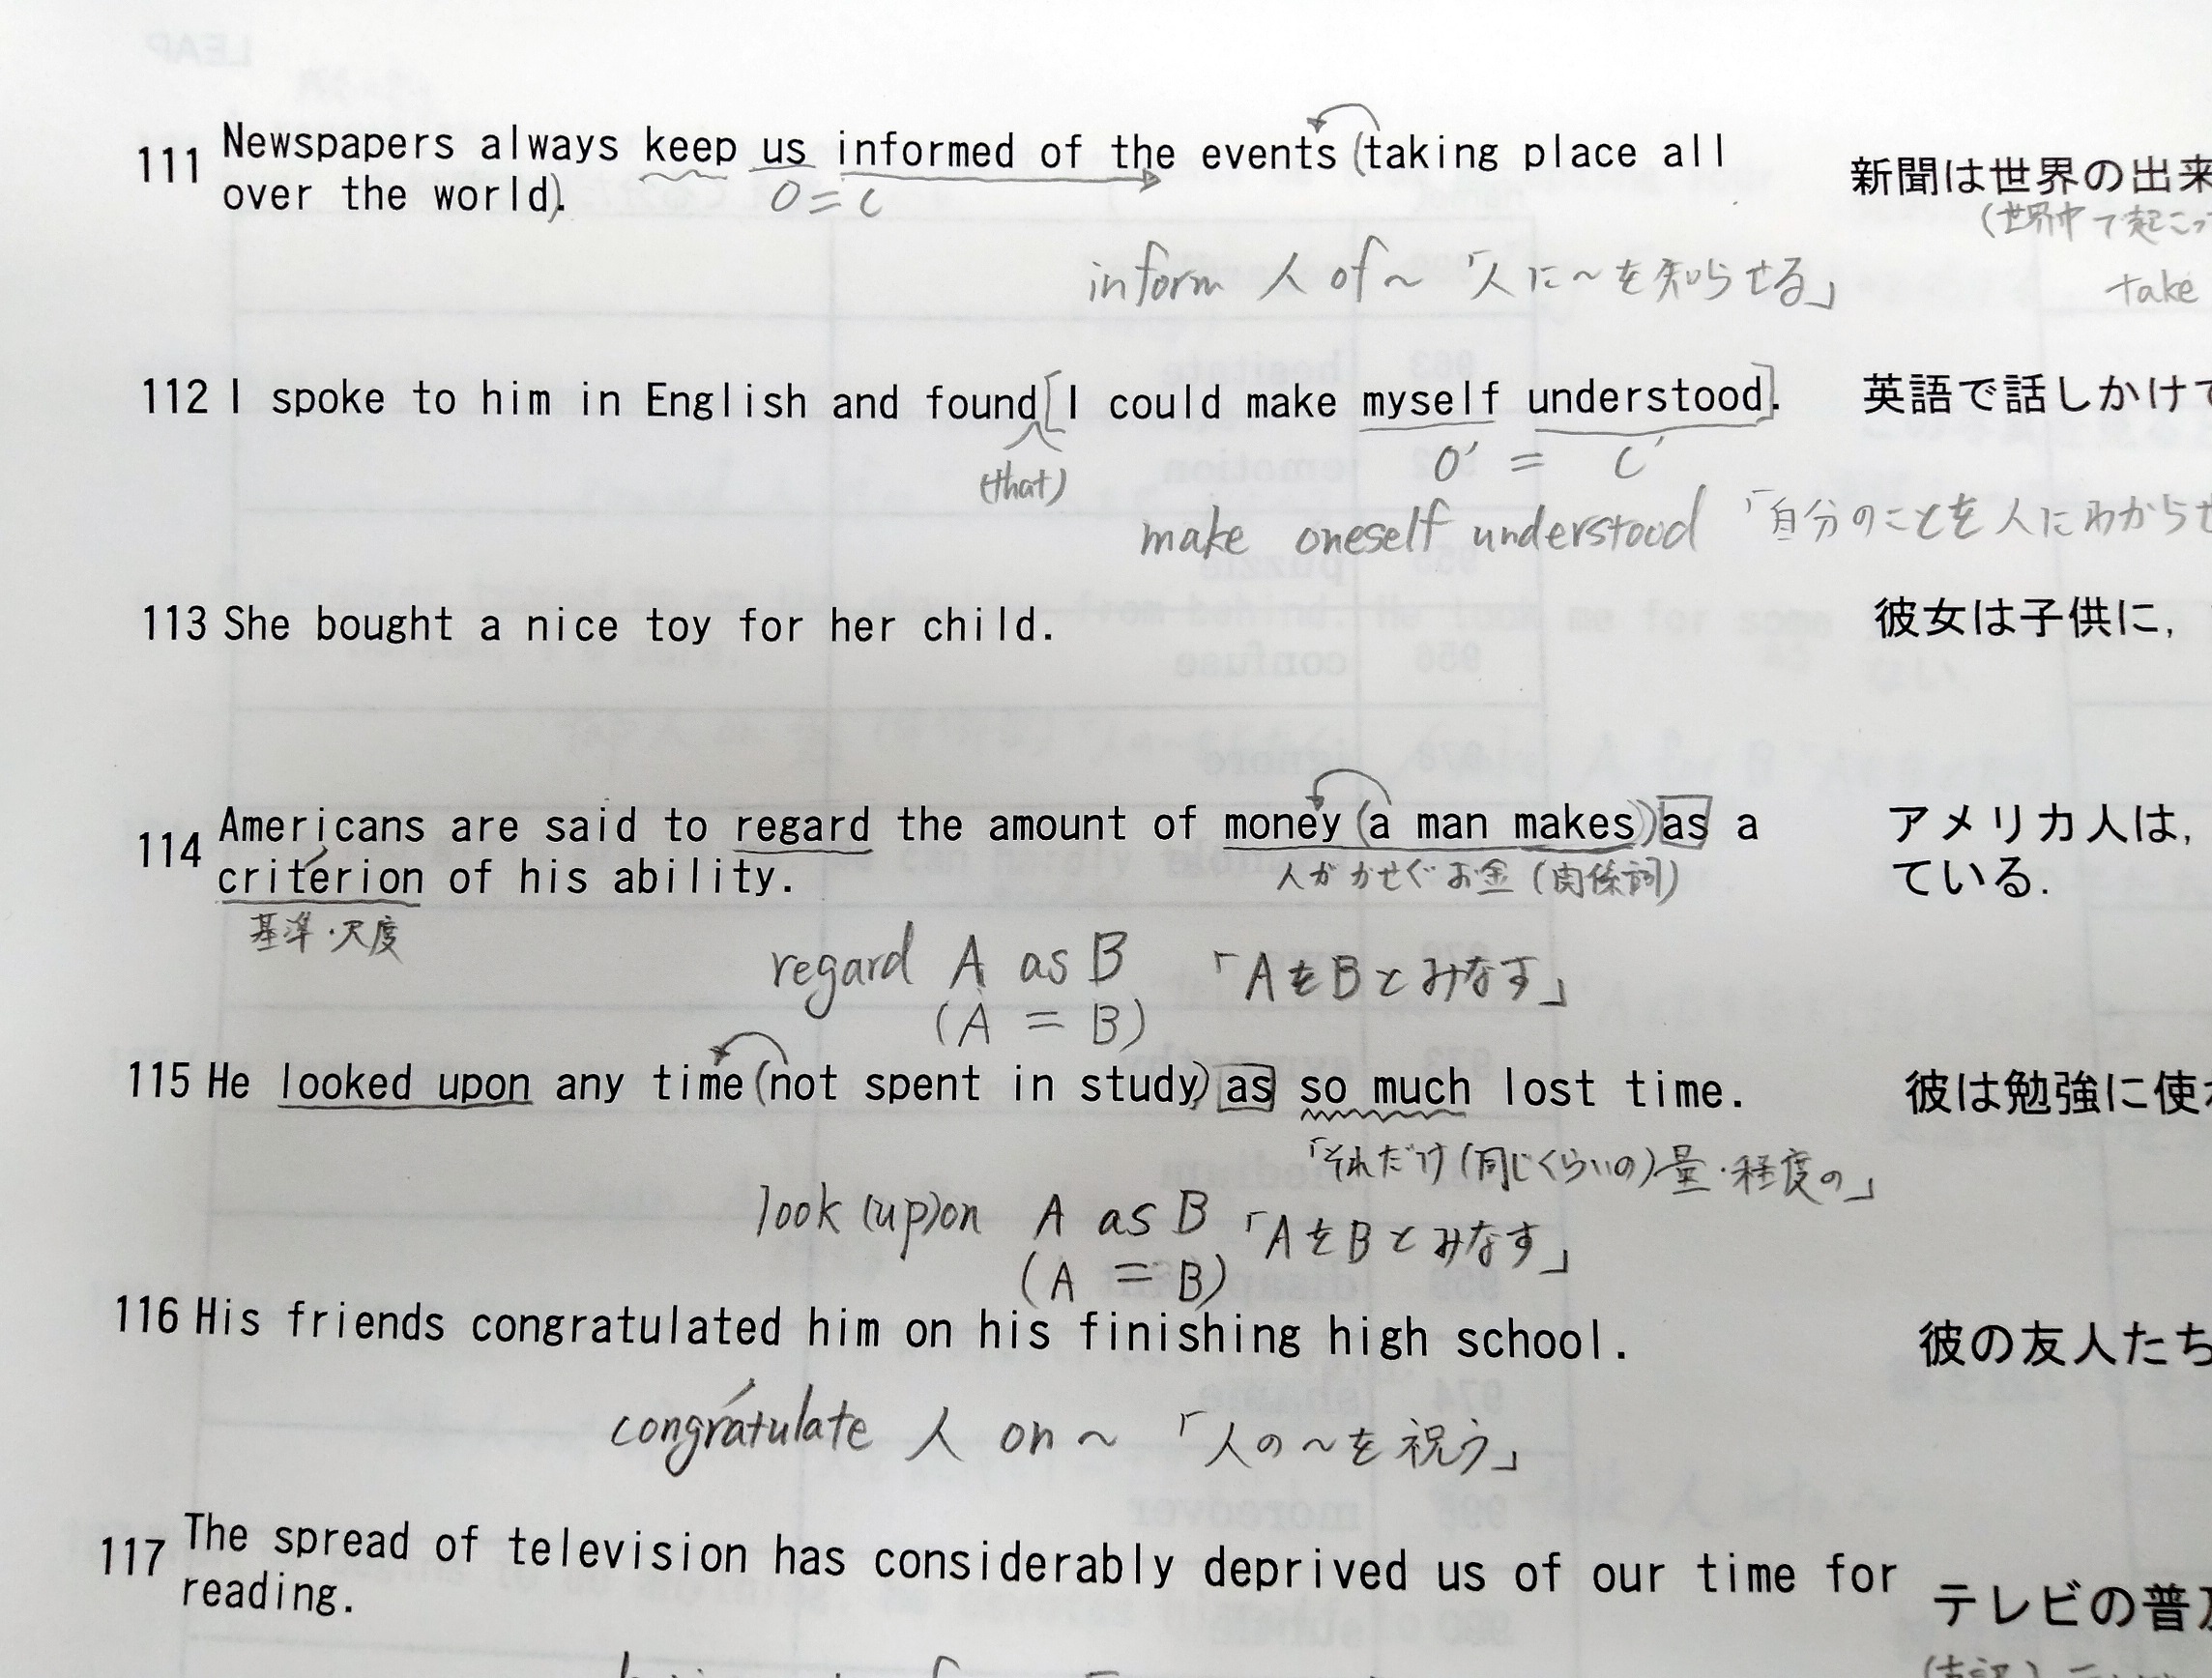 111 Newspapers always keep us informed of the events (taking place all
over the world).
新聞は世界の出来
O = C
(世界中で起こっ
inform 人 of ~ 「人に~を知らせる」
take
112 I spoke to him in English and found [I could make myself understood].
英語で話しかけて
(that)
O' = C'
make oneself understood 「自分のことを人にわからせ
113 She bought a nice toy for her child.
彼女は子供に,
114 Americans are said to regard the amount of money (a man makes) as a
criterion of his ability.
アメリカ人は,
ている.
人がかせぐお金 (関係詞)
基準・尺度
regard A as B 「AをBとみなす」
(A = B)
115 He looked upon any time (not spent in study) as so much lost time.
彼は勉強に使わ
「それだけ(同じくらいの)量・程度の」
look (up)on A as B 「AをBとみなす」
(A = B)
116 His friends congratulated him on his finishing high school.
彼の友人たち
congrátulate 人 on ~ 「人の~を祝う」
117 The spread of television has considerably deprived us of our time for
reading.
テレビの普及